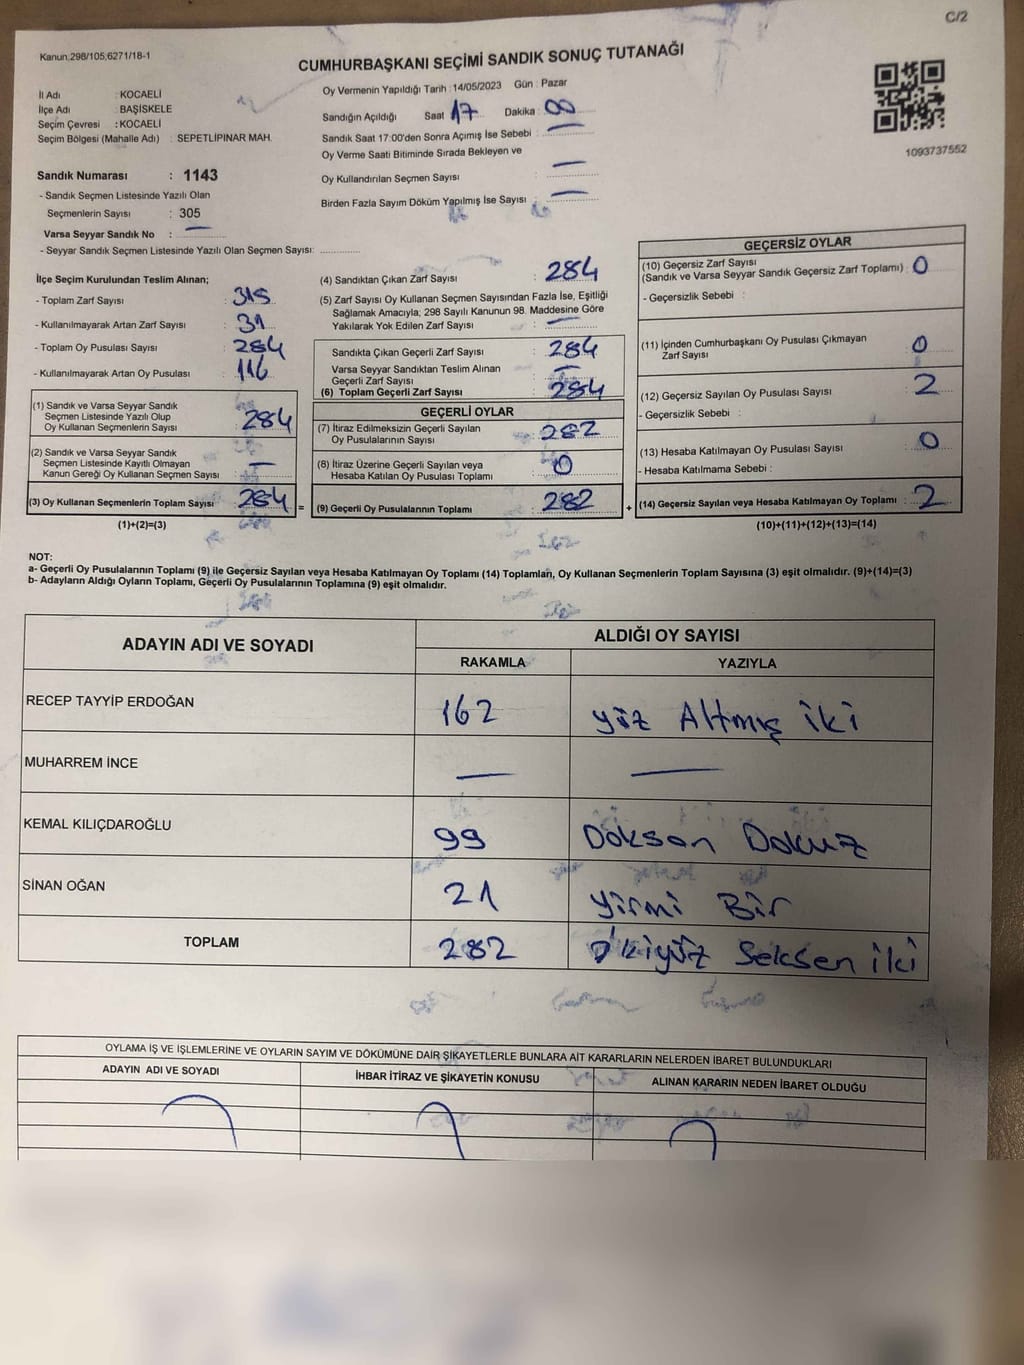 C/2
Kanun.298/105,6271/18-1
CUMHURBAŞKANI SEÇİMİ SANDIK SONUÇ TUTANAĞI
İl Adı : KOCAELİ
İlçe Adı : BAŞİSKELE
Seçim Çevresi : KOCAELİ
Seçim Bölgesi (Mahalle Adı) : SEPETLİPINAR MAH.
Sandık Numarası : 1143
- Sandık Seçmen Listesinde Yazılı Olan
Seçmenlerin Sayısı : 305
Varsa Seyyar Sandık No : —
- Seyyar Sandık Seçmen Listesinde Yazılı Olan Seçmen Sayısı: ............
Oy Vermenin Yapıldığı Tarih : 14/05/2023 Gün : Pazar
Sandığın Açıldığı Saat 17 Dakika : 00
Sandık Saat 17:00'den Sonra Açımış İse Sebebi : —
Oy Verme Saati Bitiminde Sırada Bekleyen ve
Oy Kullandırılan Seçmen Sayısı : —
Birden Fazla Sayım Döküm Yapılmış İse Sayısı : —
1093737552
İlçe Seçim Kurulundan Teslim Alınan;
- Toplam Zarf Sayısı : 315
- Kullanılmayarak Artan Zarf Sayısı : 31
- Toplam Oy Pusulası Sayısı : 284
- Kullanılmayarak Artan Oy Pusulası : 116
(1) Sandık ve Varsa Seyyar Sandık
Seçmen Listesinde Yazılı Olup
Oy Kullanan Seçmenlerin Sayısı : 284
(2) Sandık ve Varsa Seyyar Sandık
Seçmen Listesinde Kayıtlı Olmayan
Kanun Gereği Oy Kullanan Seçmen Sayısı : —
(3) Oy Kullanan Seçmenlerin Toplam Sayısı : 284 =
(1)+(2)=(3)
(4) Sandıktan Çıkan Zarf Sayısı : 284
(5) Zarf Sayısı Oy Kullanan Seçmen Sayısından Fazla İse, Eşitliği
Sağlamak Amacıyla; 298 Sayılı Kanunun 98. Maddesine Göre
Yakılarak Yok Edilen Zarf Sayısı : —
Sandıkta Çıkan Geçerli Zarf Sayısı : 284
Varsa Seyyar Sandıktan Teslim Alınan
Geçerli Zarf Sayısı : —
(6) Toplam Geçerli Zarf Sayısı : 284
GEÇERLİ OYLAR
(7) İtiraz Edilmeksizin Geçerli Sayılan
Oy Pusulalarının Sayısı : 282
(8) İtiraz Üzerine Geçerli Sayılan veya
Hesaba Katılan Oy Pusulası Toplamı : 0
(9) Geçerli Oy Pusulalarının Toplamı : 282 +
GEÇERSİZ OYLAR
(10) Geçersiz Zarf Sayısı
(Sandık ve Varsa Seyyar Sandık Geçersiz Zarf Toplamı) : 0
- Geçersizlik Sebebi :
(11) İçinden Cumhurbaşkanı Oy Pusulası Çıkmayan
Zarf Sayısı : 0
(12) Geçersiz Sayılan Oy Pusulası Sayısı : 2
- Geçersizlik Sebebi :
(13) Hesaba Katılmayan Oy Pusulası Sayısı : 0
- Hesaba Katılmama Sebebi :
(14) Geçersiz Sayılan veya Hesaba Katılmayan Oy Toplamı : 2
(10)+(11)+(12)+(13)=(14)
NOT:
a- Geçerli Oy Pusulalarının Toplamı (9) ile Geçersiz Sayılan veya Hesaba Katılmayan Oy Toplamı (14) Toplamları, Oy Kullanan Seçmenlerin Toplam Sayısına (3) eşit olmalıdır. (9)+(14)=(3)
b- Adayların Aldığı Oyların Toplamı, Geçerli Oy Pusulalarının Toplamına (9) eşit olmalıdır.
ADAYIN ADI VE SOYADI ALDIĞI OY SAYISI
RAKAMLA YAZIYLA
RECEP TAYYİP ERDOĞAN 162 yüz Altmış iki
MUHARREM İNCE — —
KEMAL KILIÇDAROĞLU 99 Doksan Dokuz
SİNAN OĞAN 21 yirmi Bir
TOPLAM 282 İkiyüz Seksen iki
OYLAMA İŞ VE İŞLEMLERİNE VE OYLARIN SAYIM VE DÖKÜMÜNE DAİR ŞİKAYETLERLE BUNLARA AİT KARARLARIN NELERDEN İBARET BULUNDUKLARI
ADAYIN ADI VE SOYADI İHBAR İTİRAZ VE ŞİKAYETİN KONUSU ALINAN KARARIN NEDEN İBARET OLDUĞU